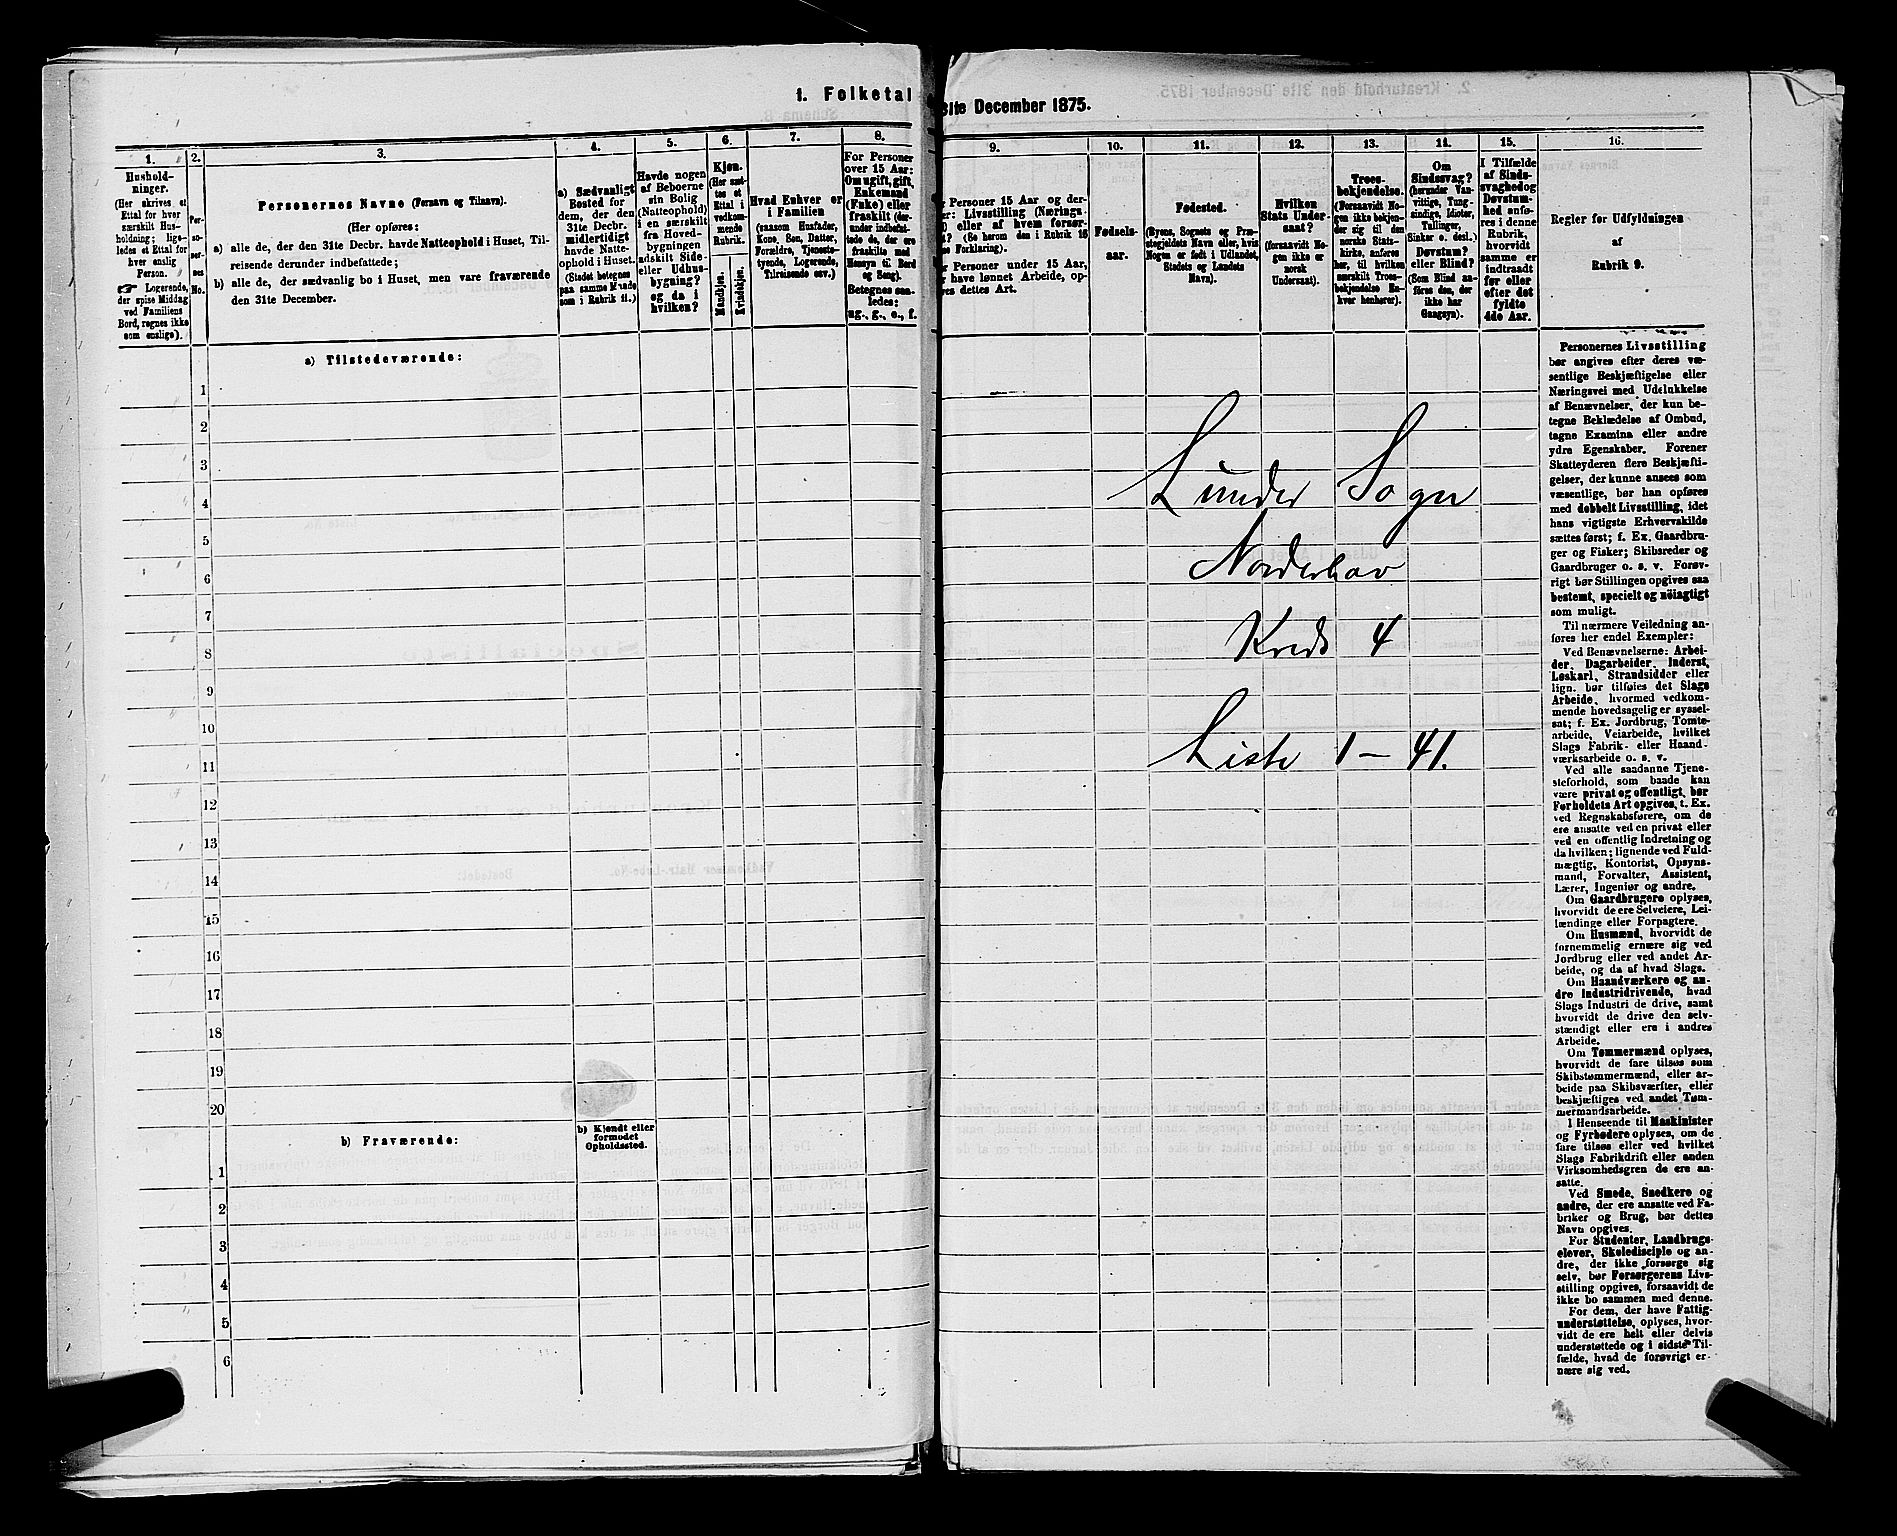 1. Folketal
31te December 1875.
1.
Hushold-
ninger.
(Her skrives et
Ettal for hver
særskilt Hus-
holdning; lige-
ledes et Ettal for
hver enslig
Person.
☞ Logerende,
der spise Middag
ved Familiens
Bord, regnes ikke
som enslige).
2.
Per-
so-
ner-
nes
No.
3.
Personernes Navne (Fornavn og Tilnavn).
(Her opføres:
a) alle de, der den 31te Decbr. havde Natteophold i Huset, Til-
reisende derunder indbefattede;
b) alle de, der sædvanlig bo i Huset, men vare fraværende
den 31te December.
4.
a) Sædvanligt
Bosted for
dem, der den
31te Decbr.
midlertidigt
havde Natte-
ophold i Huset.
(Stedet betegnes
paa samme Maade
som i Rubrik 11.)
5.
Havde nogen
af Beboerne
sin Bolig
(Natteophold)
i en særskilt
fra Hoved-
bygningen
adskilt Side-
eller Udhus-
bygning?
og da i
hvilken?
6.
Kjøn.
(Her sæt-
tes et
Ettal i
vedkom-
mende
Rubrik.
Mandkjøn.
Kvindekjøn.
7.
Hvad Enhver er
i Familien
(saasom Husfader,
Kone, Søn, Datter,
Forældre, Tjeneste-
tyende, Logerende,
Tilreisende osv.)
8.
For Personer
over 15 Aar:
Om ugift, gift,
Enkemand
(Enke) eller
fraskilt (der-
under indbefat-
tede de, der ere
fraskilte med
Hensyn til Bord
og Seng).
Betegnes saa-
ledes:
ug., g., e., f.
9.
Personer 15 Aar og der-
Livsstilling (Nærings-
eller af hvem forsør-
(Se herom den i Rubrik 16
Forklaring).
Personer under 15 Aar,
have lønnet Arbeide, op-
dettes Art.
10.
Fødsels-
aar.
11.
Fødested.
(Byens, Sognets og Præ-
stegjeldets Navn eller, hvis
Nogen er født i Udlandet,
Stedets og Landets
Navn).
12.
Hvilken
Stats Under-
saat?
(forsaavidt No-
gen ikke er
norsk
Undersaat).
13.
Troes-
bekjendelse.
(Forsaavidt No-
gen ikke bekjen-
der sig til den
norske Stats-
kirke, anføres
her, til hvilken
særskilt Troes-
bekjendelse En-
hver henhører).
14.
Om
Sindssvag?
(herunder Van-
vittige, Tung-
sindige, Idioter,
Tullinger,
Sinker o. desl.)
Døvstum?
eller Blind?
(Som Blind an-
føres den, der
ikke har
Gangsyn).
15.
I Tilfælde
af Sinds-
svaghed og
Døvstum-
hed anfø-
res i denne
Rubrik,
hvorvidt
samme er
indtraadt
før eller
efter det
fyldte
4de Aar.
16.
Regler for Udfyldningen
af
Rubrik 9.
a) Tilstedeværende:
1
2
3
4
5
6
7
8
9
10
11
12
13
14
15
16
17
18
19
20
b) Fraværende:
b) Kjendt eller
formodet
Opholdssted.
1
2
3
4
5
6
Lunder Sogn
Norderhov
Kreds 4
Liste 1 - 41.
Personernes Livsstilling
bør angives efter deres væ-
sentlige Beskjæftigelse eller
Næringsvei med Udelukkelse
af Benævnelser, der kun be-
tegne Beklædelse af Ombud,
tagne Examina eller andre
ydre Egenskaber. Forener
Skatteyderen flere Beskjæfti-
gelser, der kunne ansees som
væsentlige, bør han opføres
med dobbelt Livsstilling, idet
hans vigtigste Erhvervskilde
sættes først; f. Ex. Gaardbru-
ger og Fisker; Skibsreder og
Gaardbruger o. s. v. Forøv-
rigt bør Stillingen opgives saa
bestemt, specielt og nöiagtigt
som muligt.
Til nærmere Veiledning an-
føres her endel Exempler:
Ved Benævnelserne: Arbei-
der, Dagarbeider, Inderst,
Løskarl, Strandsidder eller
lign. bør tilføies det Slags
Arbeide, hvormed vedkom-
mende hovedsagelig er syssel-
sat; f. Ex. Jordbrug, Tomte-
arbeide, Veiarbeide, hvilket
Slags Fabrik- eller Haand-
værksarbeide o. s. v.
Ved alle saadanne Tjene-
steforhold, som baade kan
være privat og offentligt, bør
Forholdets Art opgives, t. Ex.
ved Regnskabsførere, om de
ere ansatte ved en privat eller
ved en offentlig Indretning og
da hvilken; lignende ved Fuld-
mægtig, Kontorist, Opsyns-
mand, Forvalter, Assistent,
Lærer, Ingeniør og andre.
Om Gaardbrugere oplyses,
hvorvidt de ere Selveiere, Lei-
lændinge eller Forpagtere.
Om Husmænd, hvorvidt de
fornemmelig ernære sig ved
Jordbrug eller ved andet Ar-
beide, og da af hvad Slags.
Om Haandværkere og an-
dre Industridrivende, hvad
Slags Industri de drive, samt
hvorvidt de drive den selv-
stændigt eller ere i andres
Arbeide.
Om Tømmermænd oplyses,
hvorvidt de fare tilsøs som
Skibstømmermænd, eller ar-
beide paa Skibsværfter, eller
beskjæftiges ved andet Tøm-
mermandsarbeide.
I Henseende til Maskinister
og Fyrbødere oplyses, om de
fare tilsøs eller ved hvilket
Slags Fabrikdrift eller anden
Virksomhedsgren de ere an-
satte.
Ved Smede, Snedkere og
andre, der ere ansatte ved Fa-
briker og Brug, bør dettes
Navn opgives.
For Studenter, Landbrugs-
elever, Skoledisciple og an-
dre, der ikke forsørge sig
selv, bør Forsørgerens Livs-
stilling opgives, forsaavidt de
ikke bo sammen med denne.
For dem, der have Fattig-
understøttelse, oplyses, hvor-
vidt de ere helt eller delvis
understøttede og i sidste Til-
fælde, hvad de forøvrigt er-
nære sig ved.